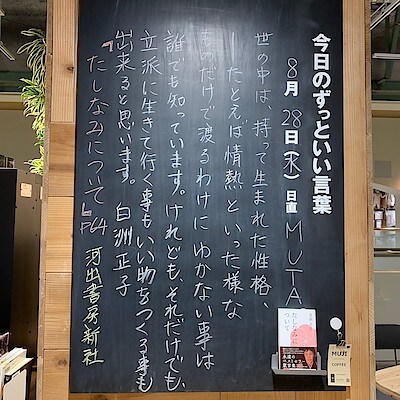 今日のずっといい言葉
8月28日(木)日直 MUTA
世の中は、持って生まれた性格、
たとえば情熱といった様な
ものだけで渡るわけにゆかない事は
誰でも知っています。けれども、それだけでも、
立派に生きて行く事もいい物をつくる事も
出来ると思います。 白洲正子
『たしなみについて』P64 河出書房新社
たしなみについて
MUJI
COFFEE